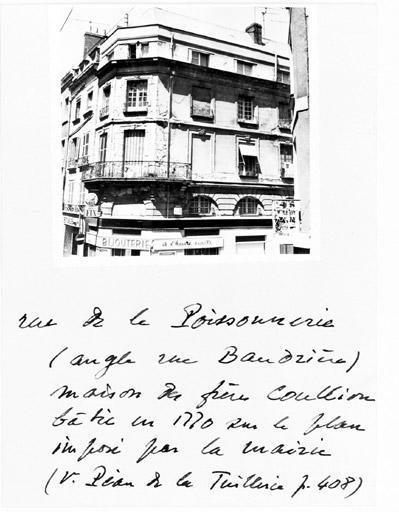 FIX
BIJOUTERIE à l'heure exacte
rue de la Poissonnerie
(angle rue Baudrière)
maison des frères Coullion
bâtie en 1770 sur le plan
imposé par la mairie
(V. Péan de la Tuillerie p. 408)